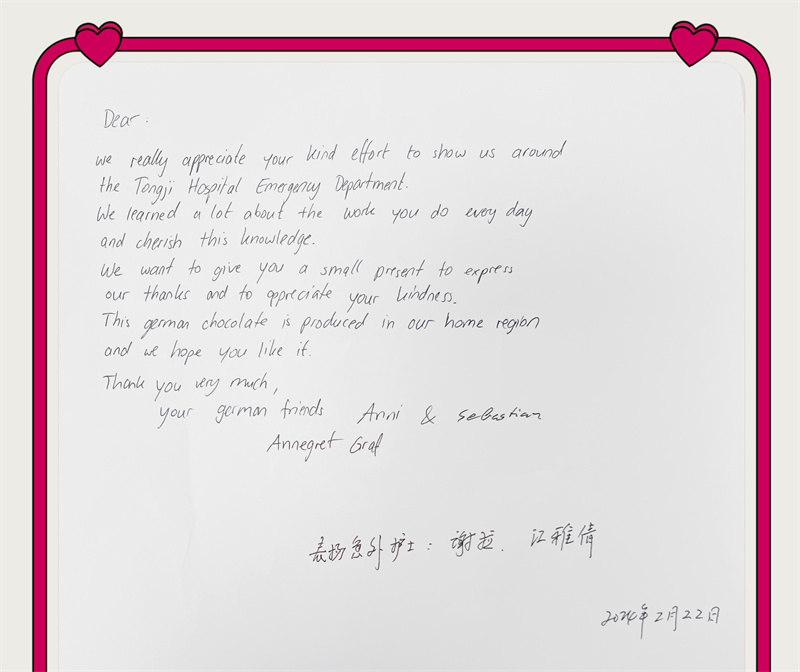 Dear.
we really appreciate your kind effort to show us around
the Tongji Hospital Emergency Department.
We learned a lot about the work you do every day
and cherish this knowledge.
We want to give you a small present to express
our thanks and to appreciate your kindness.
This german chocolate is produced in our home region
and we hope you like it.
Thank you very much,
your german friends Anni & Sebastian
Annegret Graf
表扬急外护士：谢拉、江雅倩
2024年2月22日